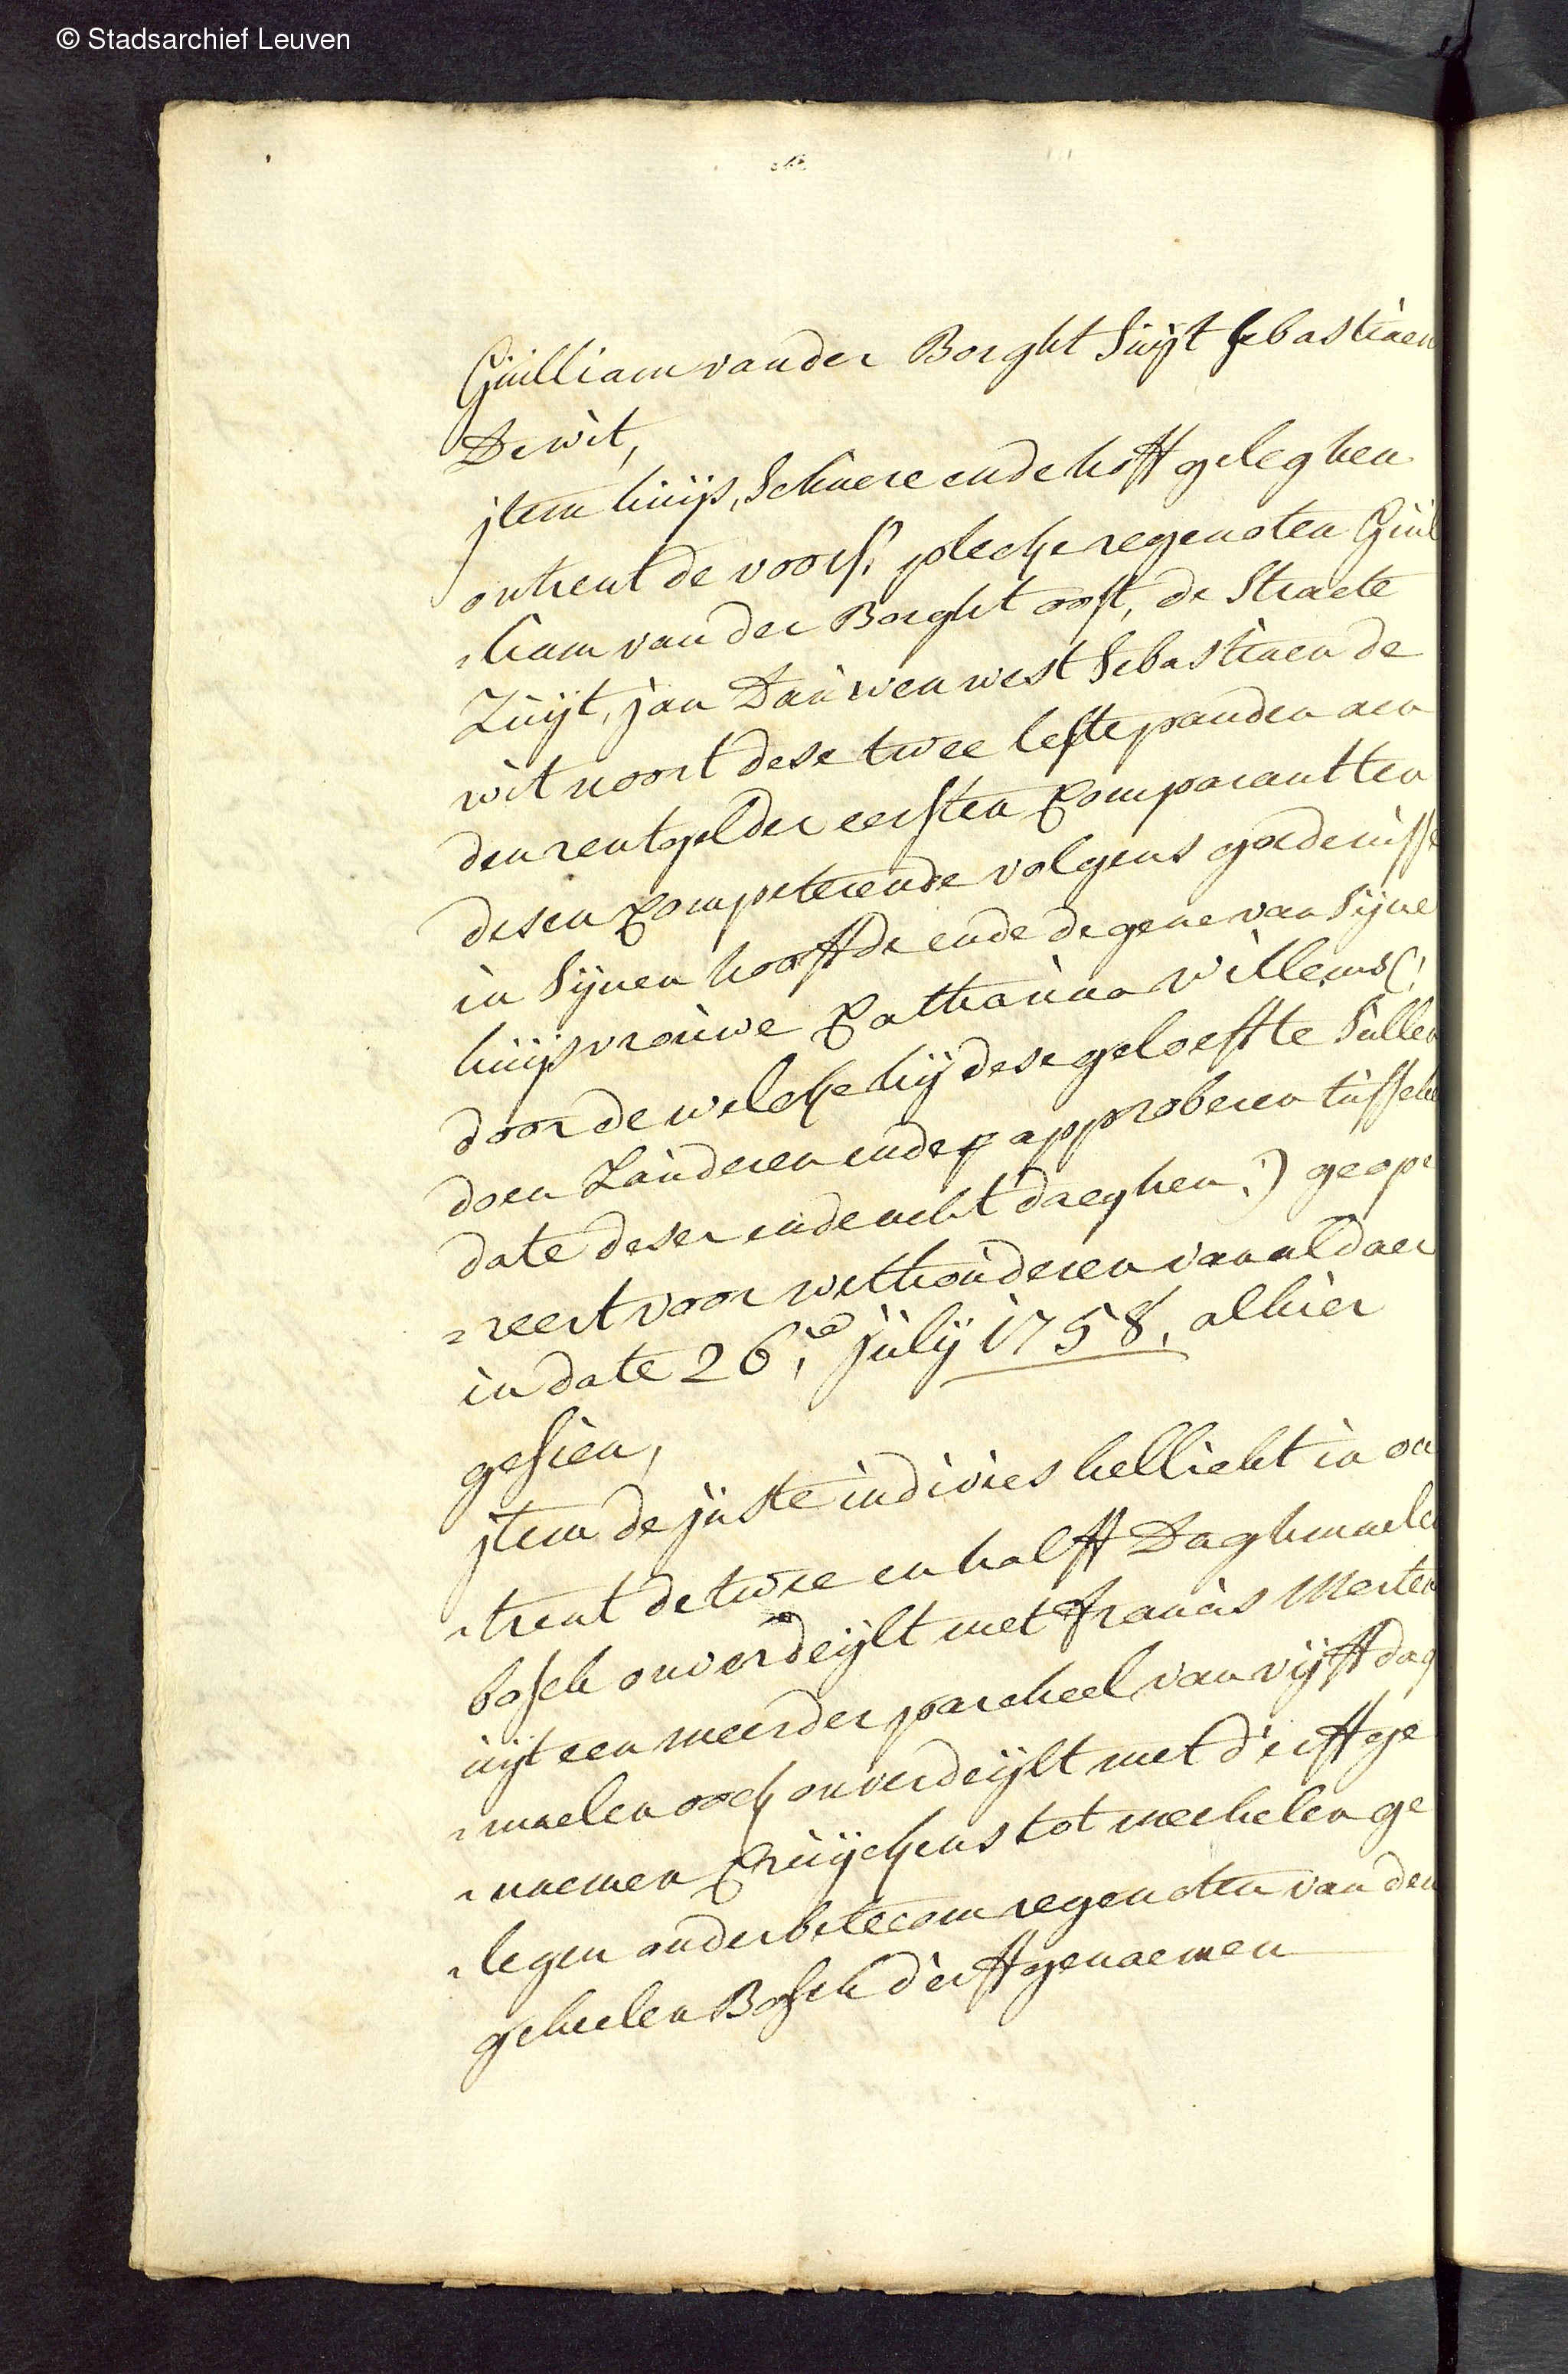 © Stadsarchief Leuven
Guilliam vander Borght suijt sebastiaen
De wit,
jtem huijs, schuere ende hoff geleghen
ontrent de voors: plecke regenoten Guil
liam vander Borght oost, de straete
Zuijt, jan Dauwen west sebastiaen de
wit noort dese twee leste panden aen
den rentgelder eersten Comparant ten
desen Competerende volgens goedenisse
in sijnen hooffde ende de gene van sijne
huijsvrouwe Catharina Willems (:
door de welcke hij dese geloeffte sullen
doen Landeren ende approberen tusschen
date deser ende acht daeghen :) geope
reert voor wethouderen van aldaer
in date 26:ie julij 1758, alhier
gesien,
jtem de juste indivies hellicht in on
trent de twee en halff Daghmaelen
bosch onverdeijlt met francis Merten
uijt een meerder parcheel van vijff dag
maelen oock onverdeijlt met d'erffge
naemen Cruijckens tot mechelen ge
legen onder betecom regenoten van den
geheelen Bosch d'erffgenaemen